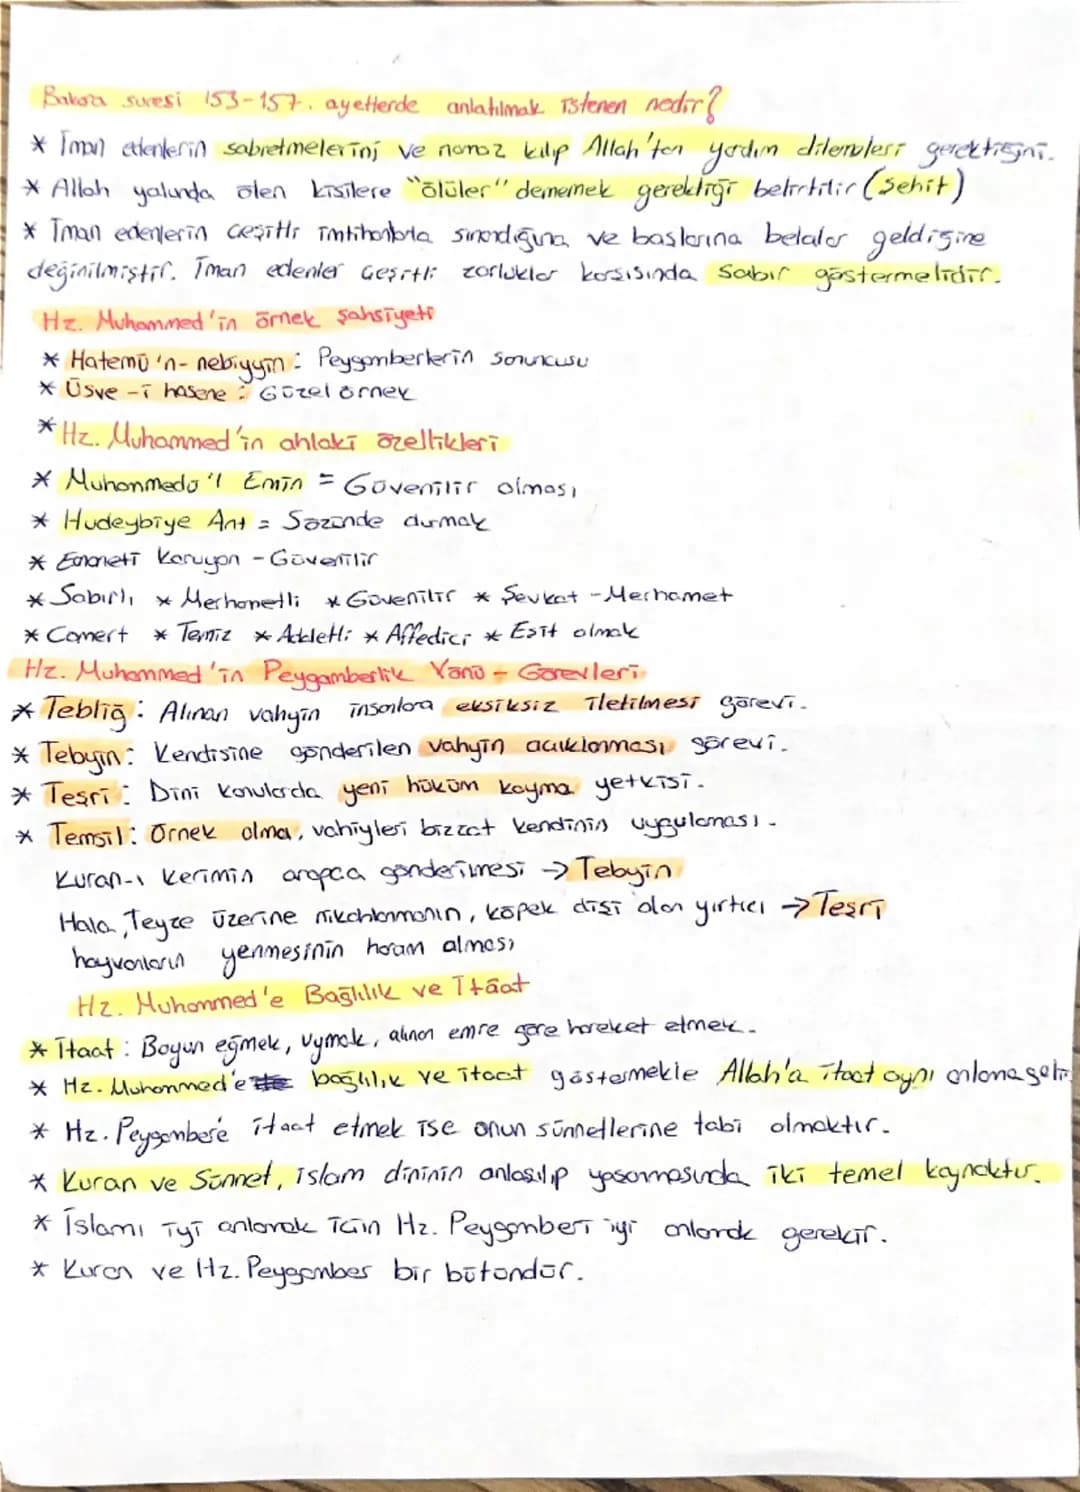 Bakara suresi 153-157. ayetlerde anlatılmak istenen nedir?
* İman edenlerin sabretmelerini ve namaz kılıp Allah'tan yardım dilemeleri gerektiğini.
* Allah yolunda ölen kişilere "ölüler" dememek gerektiği belirtilir (şehit)
* İman edenlerin çeşitli imtihanlarla sınandığına ve başlarına belalar geldiğine
değinilmiştir. İman edenler çeşitli zorluklar karşısında sabır göstermelidir.
Hz. Muhammed'in örnek şahsiyeti
* Hatemü'n-nebiyyin: Peygamberlerin sonuncusu
* Üsve-i hasene: Güzel örnek
* Hz. Muhammed'in ahlaki özellikleri
* Muhammedü'l Emin = Güvenilir olması
* Hudeybiye Ant = Sözünde durmak
* Emaneti Koruyan - Güvenilir
* Sabırlı * Merhametli * Güvenilir * Şevkat - Merhamet
* Cömert * Temiz * Adaletli * Affedici * Eşit olmak
Hz. Muhammed'in Peygamberlik Yönü - Görevleri
* Tebliğ: Alınan vahyin insanlara eksiksiz iletilmesi görevi.
* Tebyin: Kendisine gönderilen vahyin açıklanması görevi.
* Teşri: Dini konularda yeni hüküm koyma yetkisi.
* Temsil: Örnek olma, vahiyleri bizzat kendinin uygulaması.
Kuran-ı Kerimin arapça gönderilmesi → Tebyin
Hala, Teyze üzerine nikahlanmanın, köpek dişi olan yırtıcı → Teşri
hayvanların yenmesinin haram olması
Hz. Muhammed'e Bağlılık ve İtâat
* İtaat: Boyun eğmek, uymak, alınan emre göre hareket etmek.
* Hz. Muhammed'e bağlılık ve itaat göstermekle Allah'a itaat aynı anlama gelir.
* Hz. Peygambere itaat etmek ise onun sünnetlerine tabi olmaktır.
* Kuran ve Sünnet, islam dininin anlaşılıp yaşanmasında iki temel kaynaktır.
* İslamı iyi anlamak için Hz. Peygamberi iyi anlamak gerekir.
* Kuran ve Hz. Peygamber bir bütündür.